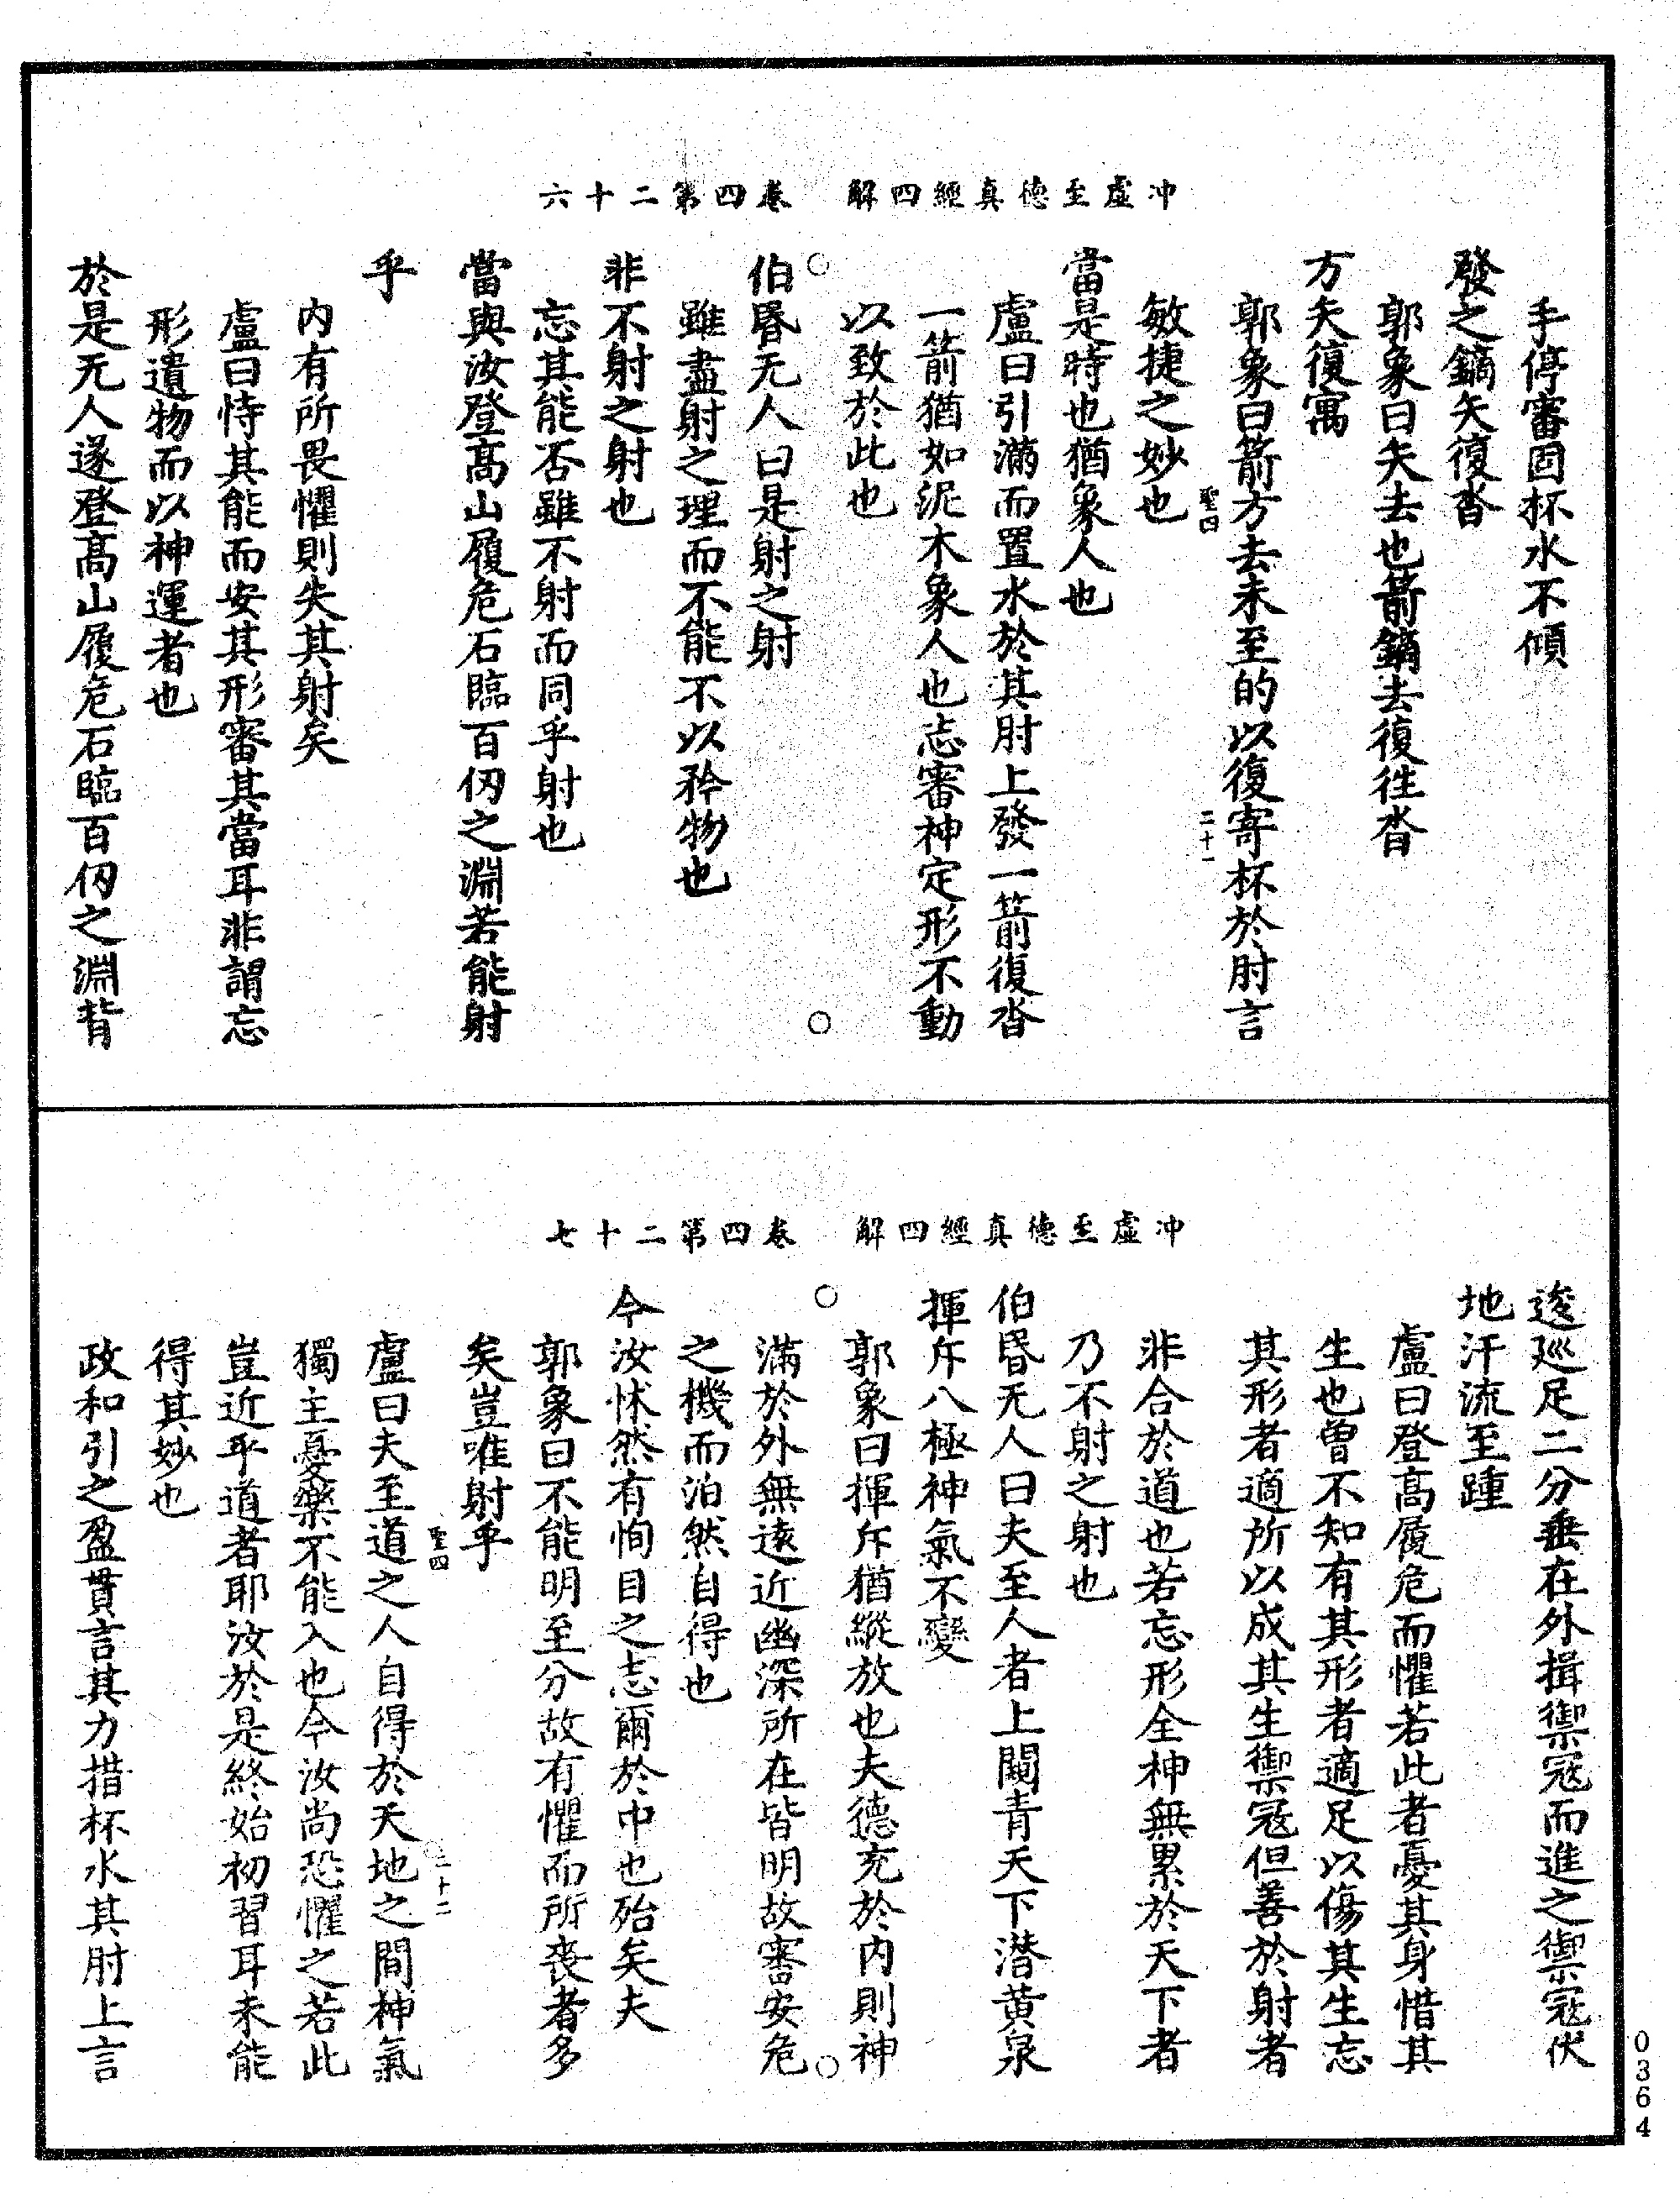 冲虛至德真經四解　卷四第二十六
手停審固杯水不傾
發之鏑矢復沓
郭象曰矢去也箭鏑去復往沓
方矢復寓
郭象曰箭方去未至的以復寄杯於肘言
敏捷之妙也
聖四　二十一
當是時也猶象人也
盧曰引滿而置水於其肘上發一箭復沓
一箭猶如泥木象人也志審神定形不動
以致於此也
伯昏无人曰是射之射
雖盡射之理而不能不以矜物也
非不射之射也
忘其能否雖不射而同乎射也
當與汝登高山履危石臨百仞之淵若能射
乎
內有所畏懼則失其射矣
盧曰恃其能而安其形審其當耳非謂忘
形遺物而以神運者也
於是无人遂登高山履危石臨百仞之淵背
冲虛至德真經四解　卷四第二十七
逡巡足二分垂在外揖禦寇而進之禦寇伏
地汗流至踵
盧曰登高履危而懼若此者憂其身惜其
生也曾不知有其形者適足以傷其生忘
其形者適所以成其生禦寇但善於射者
非合於道也若忘形全神無累於天下者
乃不射之射也
伯昏无人曰夫至人者上闚青天下潛黄泉
揮斥八極神氣不變
郭象曰揮斥猶縱放也夫德充於內則神
滿於外無遠近幽深所在皆明故審安危
之機而泊然自得也
今汝怵然有恂目之志爾於中也殆矣夫
郭象曰不能明至分故有懼而所喪者多
矣豈唯射乎
聖四　二十二
盧曰夫至道之人自得於天地之間神氣
獨主憂樂不能入也今汝尚恐懼之若此
豈近乎道者耶汝於是終始初習耳未能
得其妙也
政和引之盈貫言其力措杯水其肘上言
0364